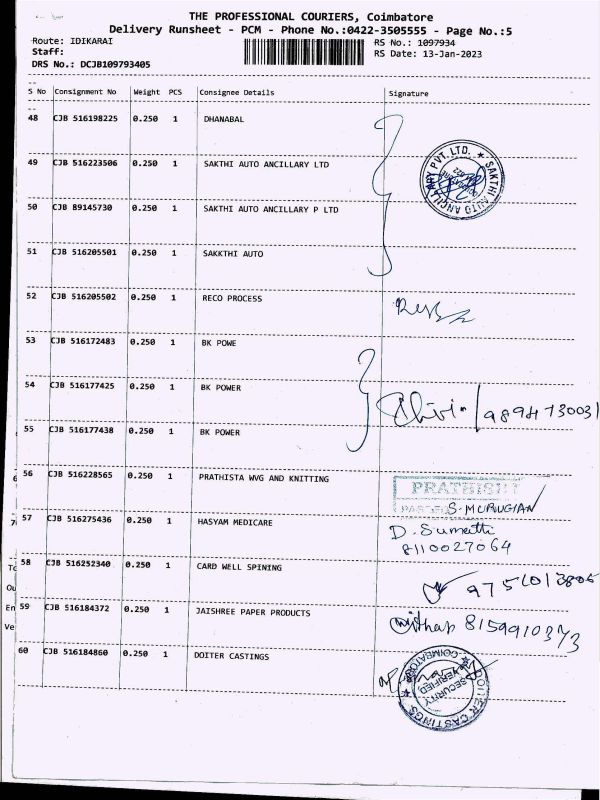 THE PROFESSIONAL COURIERS, Coimbatore
Delivery Runsheet - PCM - Phone No.:0422-3505555 - Page No.:5
Route: IDIKARAI RS No.: 1097934
Staff: RS Date: 13-Jan-2023
DRS No.: DCJB109793405
S No Consignment No Weight PCS Consignee Details Signature
48 CJB 516198225 0.250 1 DHANABAL
49 CJB 516223506 0.250 1 SAKTHI AUTO ANCILLARY LTD
SAKTHI AUTO ANCILLARY PVT. LTD.
50 CJB 89145730 0.250 1 SAKTHI AUTO ANCILLARY P LTD
51 CJB 516205501 0.250 1 SAKKTHI AUTO
52 CJB 516205502 0.250 1 RECO PROCESS
53 CJB 516172483 0.250 1 BK POWE
54 CJB 516177425 0.250 1 BK POWER
55 CJB 516177438 0.250 1 BK POWER
56 CJB 516228565 0.250 1 PRATHISTA WVG AND KNITTING
S. MURUGIAN
57 CJB 516275436 0.250 1 HASYAM MEDICARE
D. Sumathi
8110027064
58 CJB 516252340 0.250 1 CARD WELL SPINING
59 CJB 516184372 0.250 1 JAISHREE PAPER PRODUCTS
8159910373
60 CJB 516184860 0.250 1 DOITER CASTINGS
DOITER CASTINGS
COIMBATORE
SECURITY
VERIFIED